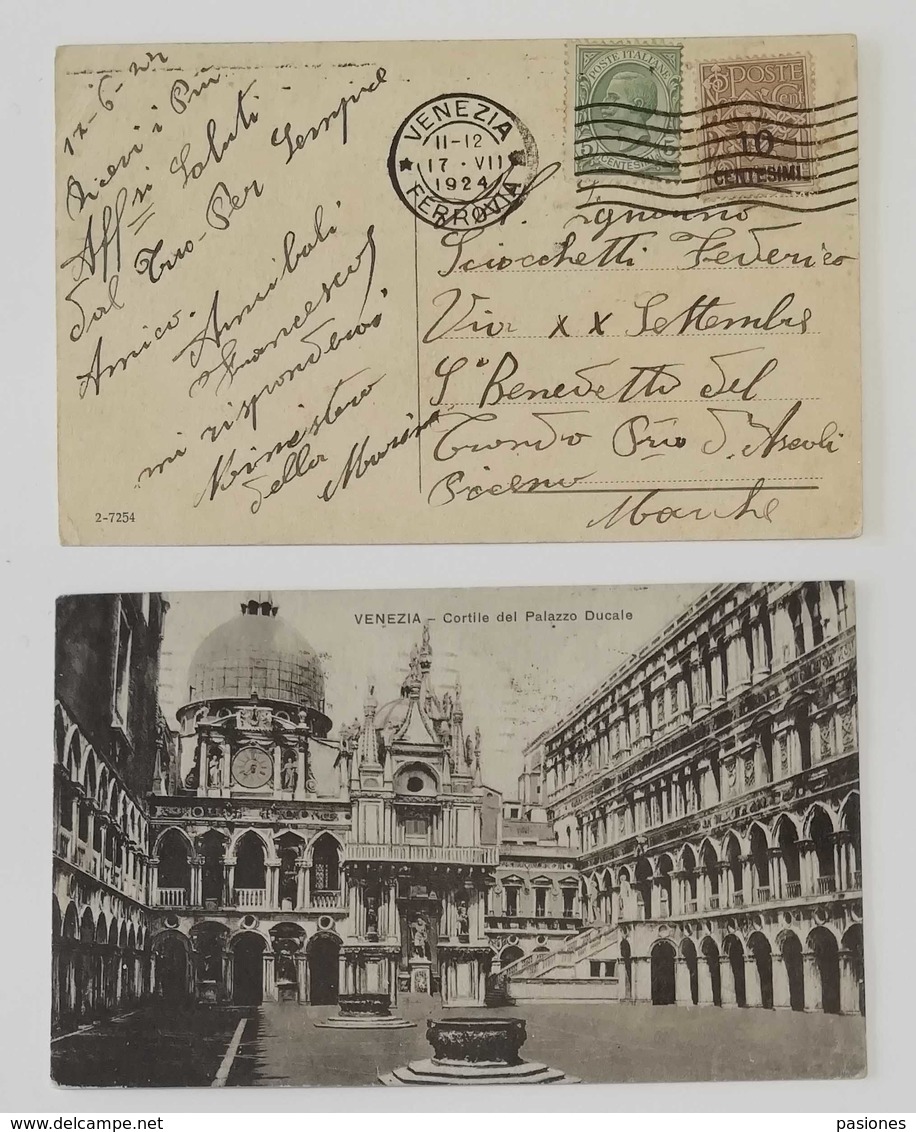 17-6-24
Ricevi i Più
Affsi Saluti
dal Tuo-Per Sempre
Amico.
Annibali
Francesco
mi rispondera
Ministero
della
Marina
2-7254
VENEZIA
11-12
17 · VII
1924
FERROVIA
POSTE ITALIANE
5 CENTESIMI 5
POSTE
10
CENTESIMI
Signorino
Sciocchetti Federico
Via XX Settembre
S. Benedetto del
Tronto Prio d'Ascoli
Piceno
Marche
VENEZIA – Cortile del Palazzo Ducale
pasiones